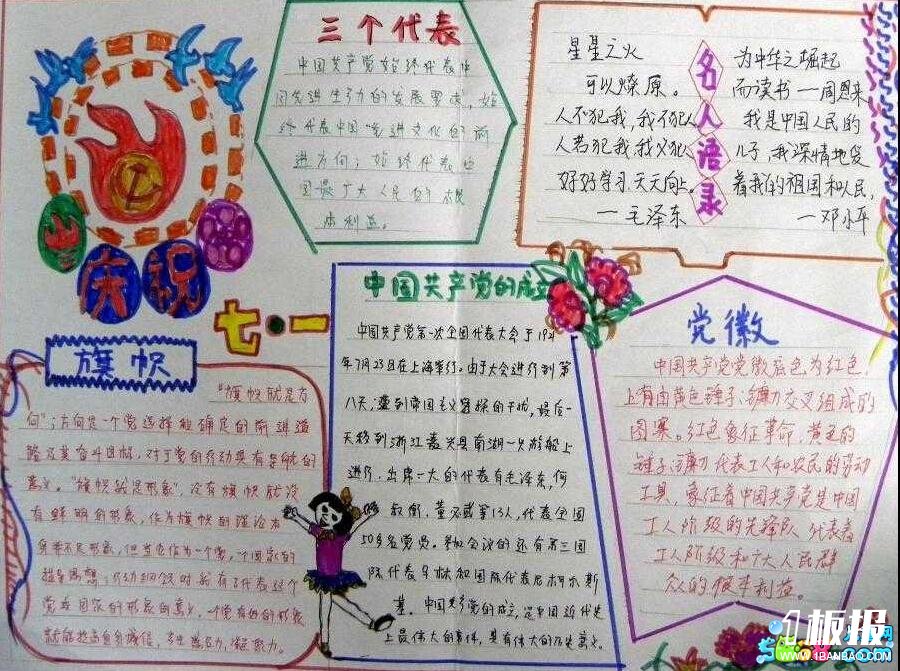 三个代表
中国共产党始终代表中
国先进生产力的发展要求,始
终代表中国先进文化的前
进方向;始终代表中
国最广大人民的根
本利益。
名人语录
星星之火
可以燎原。
人不犯我,我不犯人
人若犯我,我必犯人
好好学习,天天向上。
—毛泽东
为中华之崛起
而读书—周恩来
我是中国人民的
儿子,我深情地爱
着我的祖国和人民,
—邓小平
庆祝
七·一
旗帜
“旗帜就是方
向”;方向是一个党选择和确定的前进道
路及其奋斗目标,对于党的行动具有
意义。“旗帜就是形象”,没有旗帜就没
有鲜明的形象,作为旗帜的理论本
身并不是形象,但当它作为一个党、一个国家的
指导思想
党或国家的形象的意义。一个党有好的形象
就能
中国共产党的成立
中国共产党第一次全国代表大会于1921
年7月23日在上海举行。由于大会进行到第
八天,遭到帝国主义的干扰,最后一
天移到浙江嘉兴县南湖一只游船上
进行。出席一大的代表有毛泽东,何
叔衡,董必武等13人,代表全国
50多名党员。参加会议的还有第三国
际代表马林和国际代表尼柯尔斯
基。中国共产党的成立,是中国近代史
上最伟大的事件,具有伟大的历史意义。
党徽
中国共产党党徽底色为红色,
上有由黄色锤子、镰刀交叉组成的
图案。红色象征革命,黄色的
锤子、镰刀代表工人和农民的劳动
工具,象征着中国共产党是中国
工人阶级的先锋队,代表着
工人阶级和广大人民群
众的根本利益。
板报
WWW.1BANBAO.COM